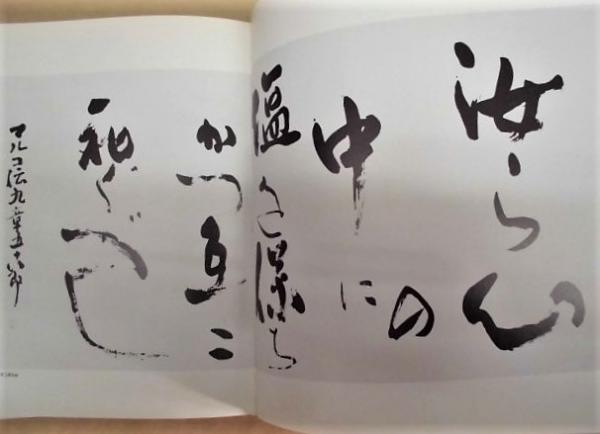 汝ら心
の
中に
塩を保ち
かつ互ニ
和ぐべし
マルコ伝九章五十節